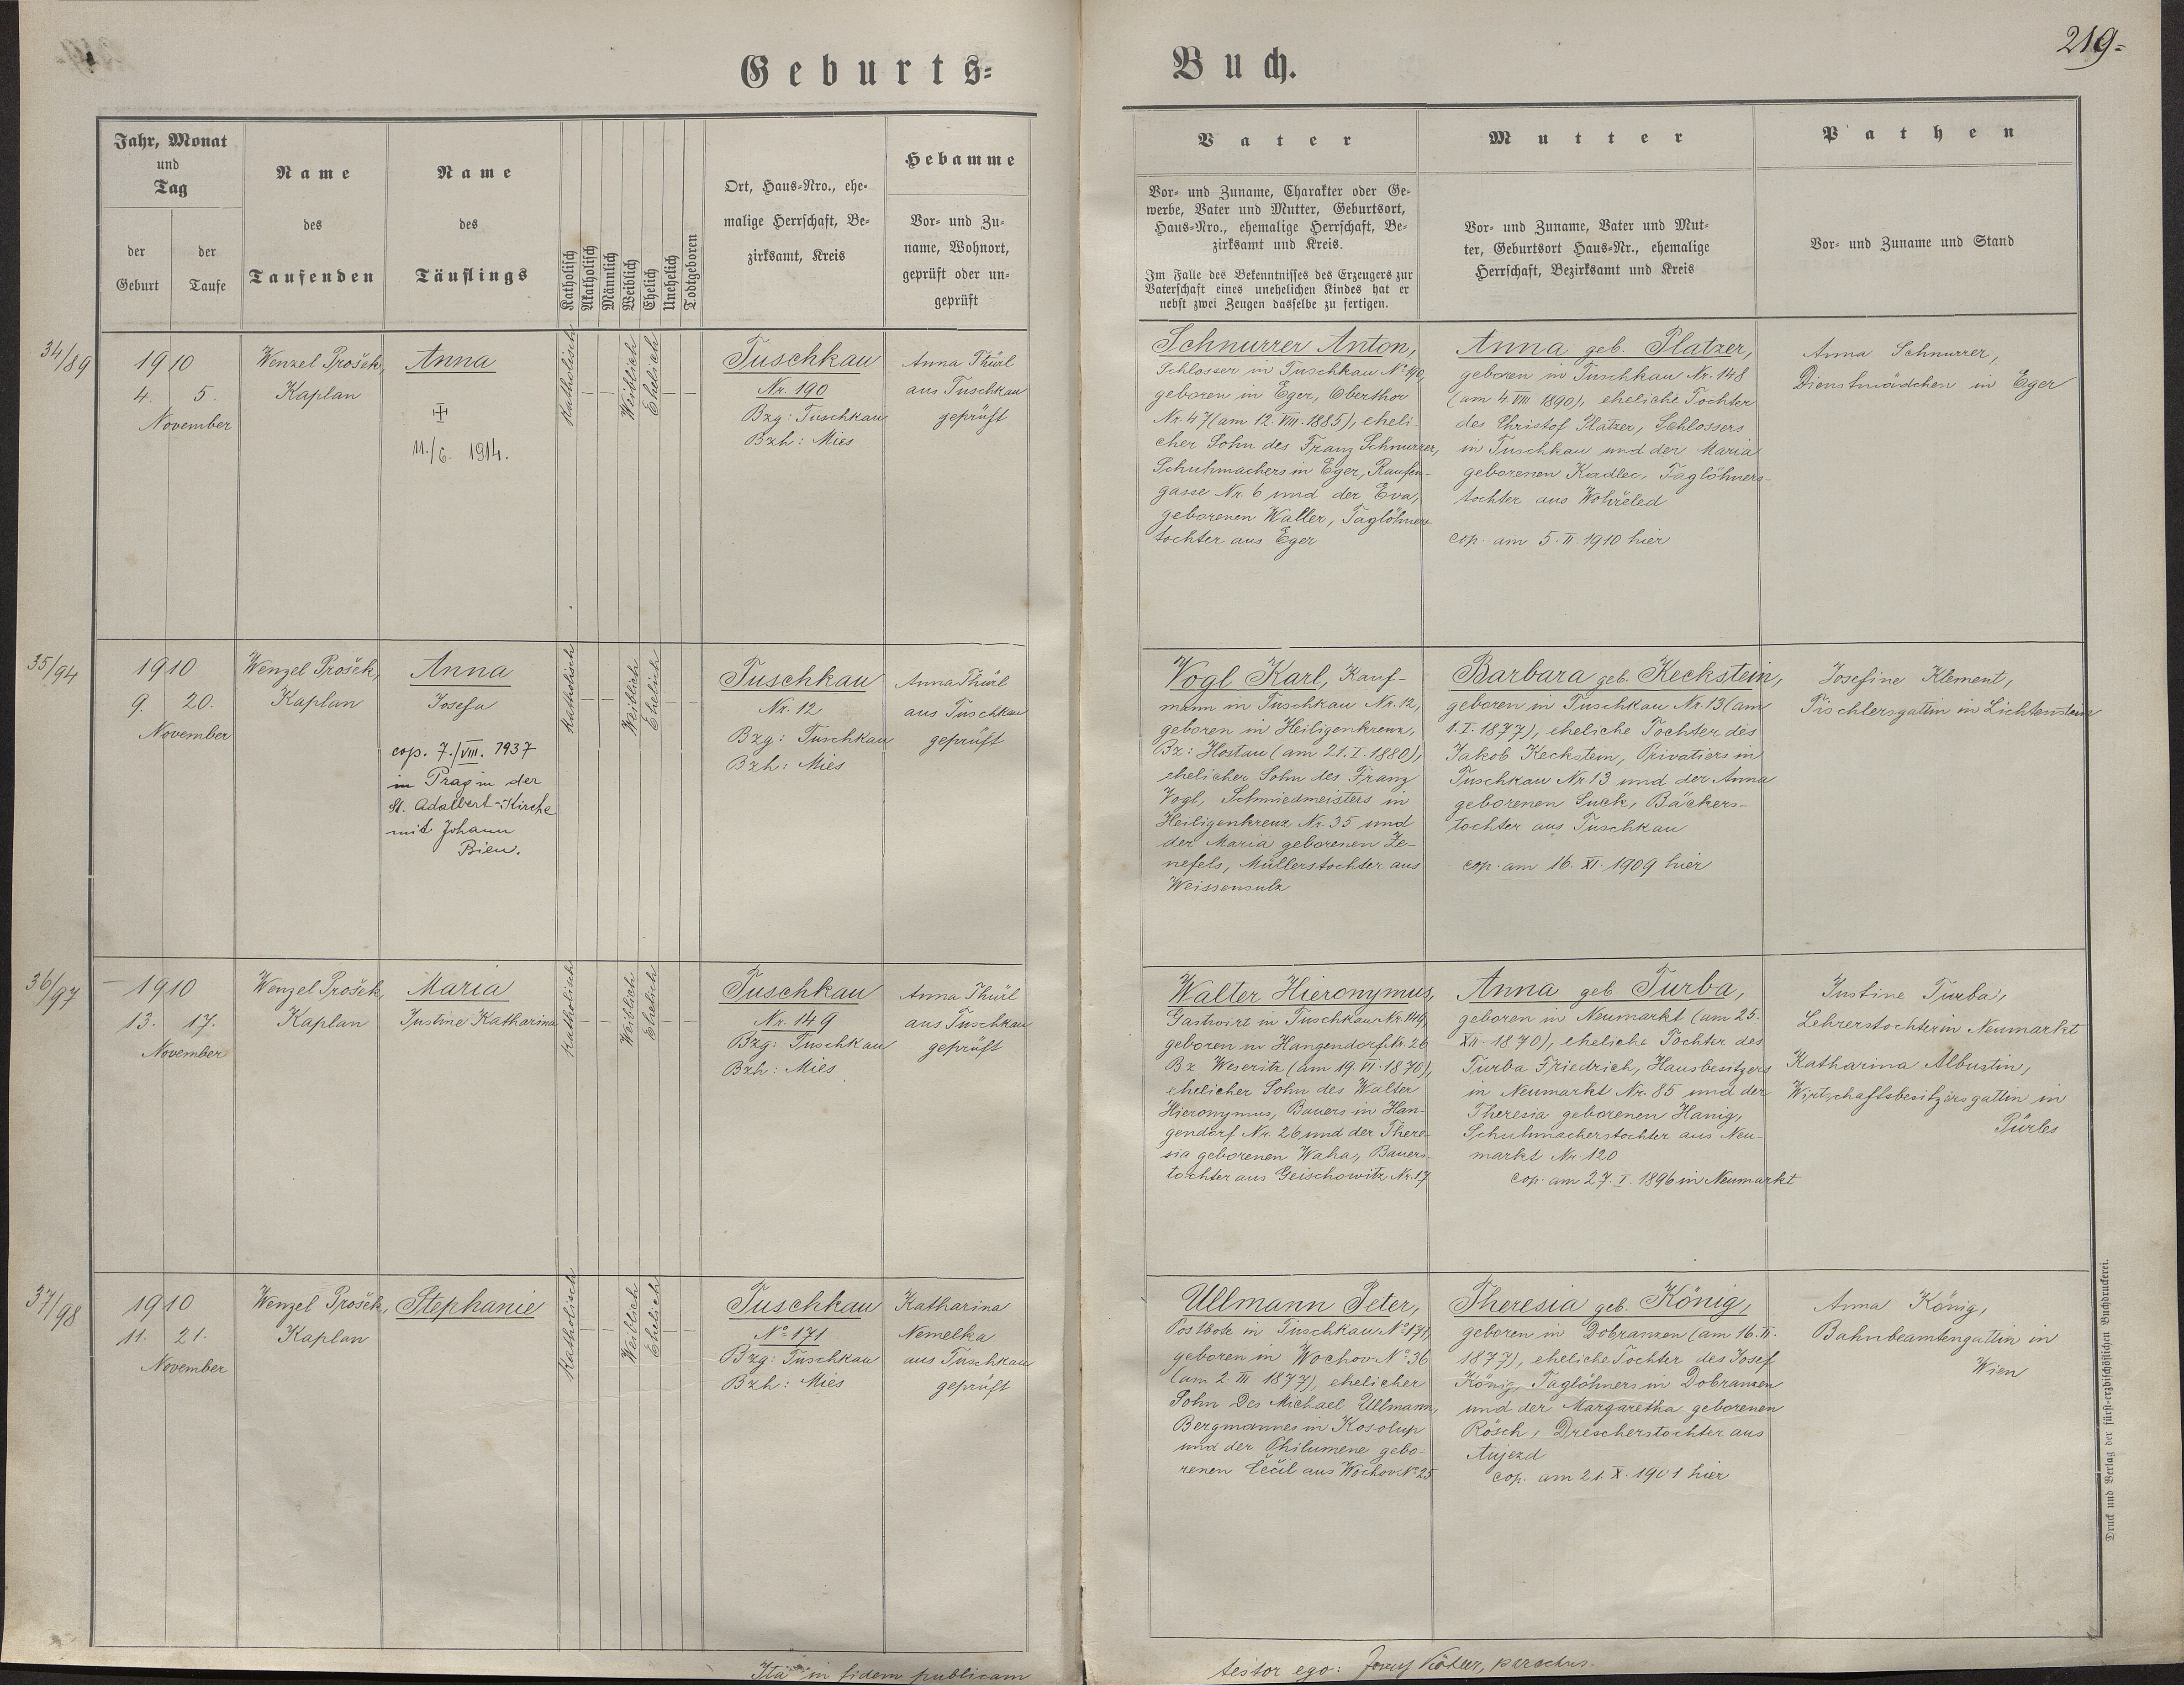 219=
Geburts=
Buch.
Jahr, Monat
und
Tag
der
Geburt
der
Taufe
Name
des
Taufenden
Name
des
Täuflings
Katholisch
Akatholisch
Männlich
Weiblich
Ehelich
Unehelich
Todtgeboren
Ort, Haus=Nro., ehe=
malige Herrschaft, Be=
zirksamt, Kreis
Hebamme
Vor= und Zu=
name, Wohnort,
geprüft oder un=
geprüft
Vater
Vor= und Zuname, Charakter oder Ge=
werbe, Vater und Mutter, Geburtsort,
Haus=Nro., ehemalige Herrschaft, Be=
zirksamt und Kreis.
Im Falle des Bekenntnisses des Erzeugers zur
Vaterschaft eines unehelichen Kindes hat er
nebst zwei Zeugen dasselbe zu fertigen.
Mutter
Vor= und Zuname, Vater und Mut=
ter, Geburtsort Haus=Nr., ehemalige
Herrschaft, Bezirksamt und Kreis
Pathen
Vor= und Zuname und Stand
34/89
1910
4. 5.
November
Wenzel Prošek,
Kaplan
Anna
11./6. 1914.
Katholisch
Weiblich
Ehelich
Tuschkau
Nr. 190
Bzg: Tuschkau
Bzh: Mies
Anna Thürl
aus Tuschkau
geprüft
Schnurrer Anton,
Schlosser in Tuschkau No 190,
geboren in Eger, Oberthor
Nr. 47 (am 12. VIII. 1885), eheli-
cher Sohn des Franz Schnurrer,
Schuhmachers in Eger,
gasse Nr. 6 und der Eva,
geborenen Waller, Taglöhners
tochter aus Eger
Anna geb. Platzer,
geboren in Tuschkau Nr. 148
(am 4. VIII 1890), eheliche Tochter
des Christof Platzer, Schlossers
in Tuschkau und der Maria
geborenen Kadlec, Taglöhners-
tochter aus Wohřeled
cop. am 5. II. 1910 hier
Anna Schnurrer,
Dienstmädchen in Eger
35/94
1910
9. 20.
November
Wenzel Prošek,
Kaplan
Anna
Josefa
cop. 7./VIII. 1937
in Prag in der
St. Adalbert-Kirche
mit Johann
Bien.
Katholisch
Weiblich
Ehelich
Tuschkau
Nr. 12
Bzg: Tuschkau
Bzh: Mies
Anna Thürl
aus Tuschkau
geprüft
Vogl Karl, Kauf-
mann in Tuschkau Nr. 12,
geboren in Heiligenkreuz,
Bz: Hostau (am 21. I. 1880),
ehelicher Sohn des Franz
Vogl, Schmiedmeisters in
Heiligenkreuz Nr. 35 und
der Maria geborenen Ze-
nefels, Müllerstochter aus
Weissensulz
Barbara geb. Keckstein,
geboren in Tuschkau Nr. 13 (am
1. I. 1877), eheliche Tochter des
Jakob Keckstein, Privatiers in
Tuschkau Nr. 13 und der Anna
geborenen Suck, Bäckers-
tochter aus Tuschkau
cop. am 16. XI. 1909 hier
Josefine Klement,
Tischlersgattin in Lichtenstein
36/97
1910
13. 17.
November
Wenzel Prošek,
Kaplan
Maria
Justine Katharina
Katholisch
Weiblich
Ehelich
Tuschkau
Nr. 149
Bzg: Tuschkau
Bzh: Mies
Anna Thürl
aus Tuschkau
geprüft
Walter Hieronymus,
Gastwirt in Tuschkau Nr. 149,
geboren in Hangendorf Nr. 26
Bz Weseritz (am 19. VI. 1870),
ehelicher Sohn des Walter
Hieronymus, Bauers in Han-
gendorf Nr. 26 und der There-
sia geborenen Waha, Bauers-
tochter aus Geischowitz Nr. 17
Anna geb. Turba,
geboren in Neumarkt (am 25.
XII. 1870), eheliche Tochter des
Turba Friedrich, Hausbesitzers
in Neumarkt Nr. 85 und der
Theresia geborenen Hanig,
Schuhmacherstochter aus Neu-
markt Nr. 120
cop. am 27. I. 1896 in Neumarkt
Justine Turba,
Lehrerstochter in Neumarkt
Katharina Albustin,
Wirtschaftsbesitzersgattin in
Pürles
37/98
1910
11. 21.
November
Wenzel Prošek,
Kaplan
Stephanie
Katholisch
Weiblich
Ehelich
Tuschkau
No 171
Bzg: Tuschkau
Bzh: Mies
Katharina
Nemelka
aus Tuschkau
geprüft
Ullmann Peter,
Postbote in Tuschkau No 171,
geboren in Wochov No 36
(am 2. III 1877), ehelicher
Sohn des Michael Ullmann,
Bergmannes in Kosolup
und der Philumene gebo-
renen Cečil aus Wochov No 25
Theresia geb. König,
geboren in Dobranzen (am 16. II.
1877), eheliche Tochter des Josef
König, Taglöhners in Dobranzen
und der Margaretha geborenen
Rösch, Drescherstochter aus
Aujezd
cop. am 21. X. 1901 hier
Anna König,
Bahnbeamtengattin in
Wien
Ita in fidem publicam
testor ego: Josef Köhler, parochus.
Druck und Verlag der fürst=erzbischöflichen Buchdruckerei.